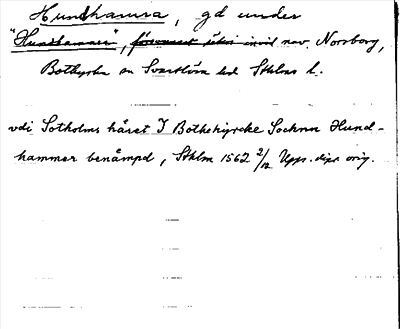 Hundhamra, gd under
"Hundhammar", försvunnet säteri invid nuv. Norsborg,
Botkyrka sn Svartlösa hd Sthlms l.
vdi Sotholms häret I Bothekyrcke Sochnn Hund-
hammer benämpd, Sthlm 1562 2/12 Upps. dipl orig.